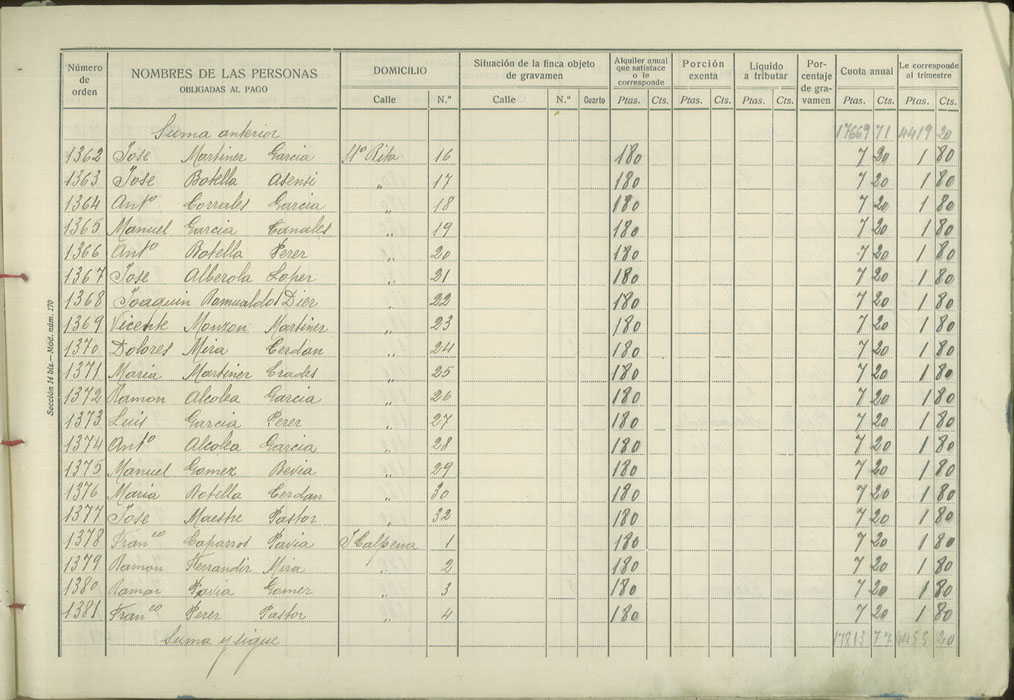 Número de orden | NOMBRES DE LAS PERSONAS OBLIGADAS AL PAGO | DOMICILIO | Situación de la finca objeto de gravamen | Alquiler anual que satisface o le corresponde | Porción exenta | Líquido a tributar | Porcentaje de gravamen | Cuota anual | Le corresponde al trimestre
Calle | N.º | Calle | N.º | Cuarto | Ptas. | Cts. | Ptas. | Cts. | Ptas. | Cts. | Ptas. | Cts. | Ptas. | Cts.
Suma anterior 17669 71 4419 20
1362 Jose Martinez Garcia Stª Rita 16 180 7 20 1 80
1363 Jose Botella Asensi " 17 180 7 20 1 80
1364 Antº Corrales Garcia " 18 180 7 20 1 80
1365 Manuel Garcia Canales " 19 180 7 20 1 80
1366 Antº Botella Perez " 20 180 7 20 1 80
1367 Jose Alberola Lopez " 21 180 7 20 1 80
1368 Joaquin Romualdo Diez " 22 180 7 20 1 80
1369 Vicente Monzon Martinez " 23 180 7 20 1 80
1370 Dolores Mira Cerdan " 24 180 7 20 1 80
1371 Maria Martinez " 25 180 7 20 1 80
1372 Ramon Alcolea Garcia " 26 180 7 20 1 80
1373 Luis Garcia Perez " 27 180 7 20 1 80
1374 Antº Alcolea Garcia " 28 180 7 20 1 80
1375 Manuel Gomez Bevia " 29 180 7 20 1 80
1376 Maria Botella Cerdan " 30 180 7 20 1 80
1377 Jose Maestre Pastor " 32 180 7 20 1 80
1378 Franco Caparros Pavia J Calpena 1 180 7 20 1 80
1379 Ramon Ferrandiz Mira " 2 180 7 20 1 80
1380 Ramon Pavia Gomez " 3 180 7 20 1 80
1381 Franco Perez Pastor " 4 180 7 20 1 80
Suma y sigue 17813 77 4455 20
Sección 14 bis.—Mod. núm. 170